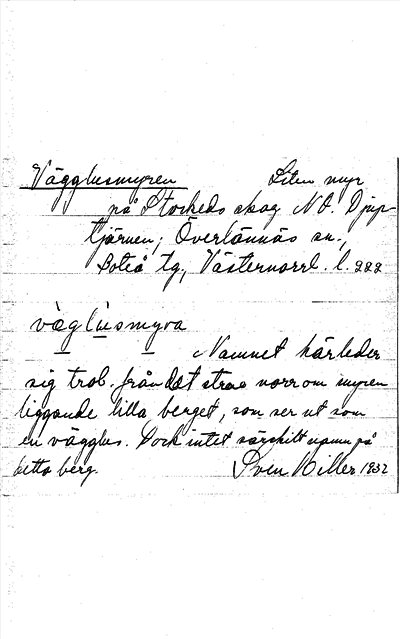 Vägglusmyren Liten myr
på Stockeds skog NO. Djup-
tjärnen; Överlännäs sn.,
Boteå tg, Västernorrl. l.
vὰglùsmyra
Namnet härleder
sig trol. från det strax norr om myren
liggande lilla berget, som ser ut som
en vägglus. Dock intet särskilt namn på
detta berg. Sven Hiller 1932